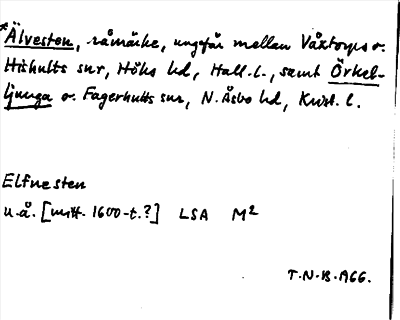 *Älvesten, råmärke, ungefär mellan Våxtorps o.
Hishults snr, Höks hd, Hall. l., samt Örkel-
ljunga o. Fagerhults snr, N. Åsbo hd, Krist. l.
Elfuesten
u.å. [mitt. 1600-t.?] LSA M²
T.N-B. 1966.